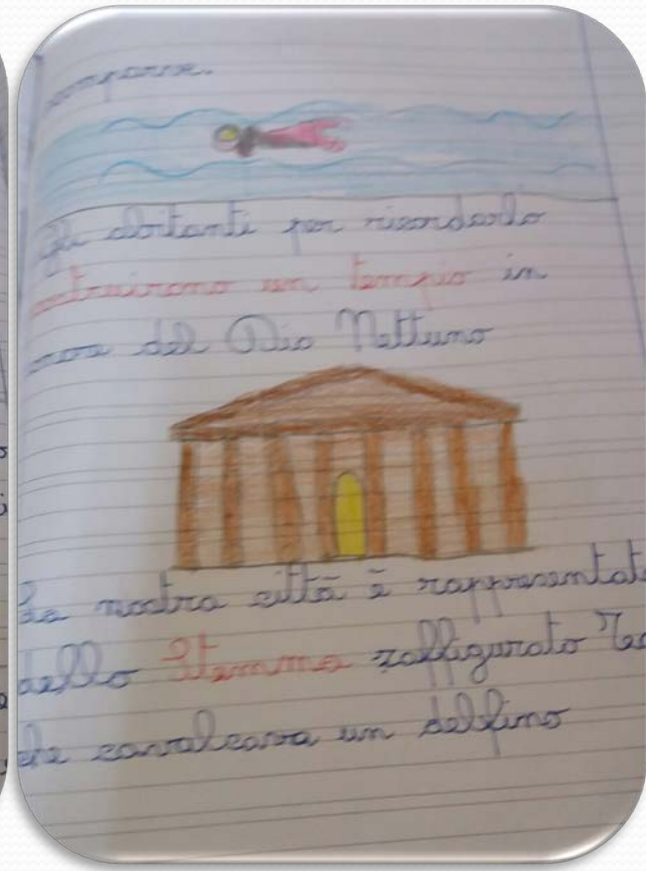 scomparve.
Gli abitanti per ricordarlo
costruirono un tempio in
onore del Dio Nettuno
La nostra città è rappresentat
dello Stemma raffigurato
che cavalcava un delfino